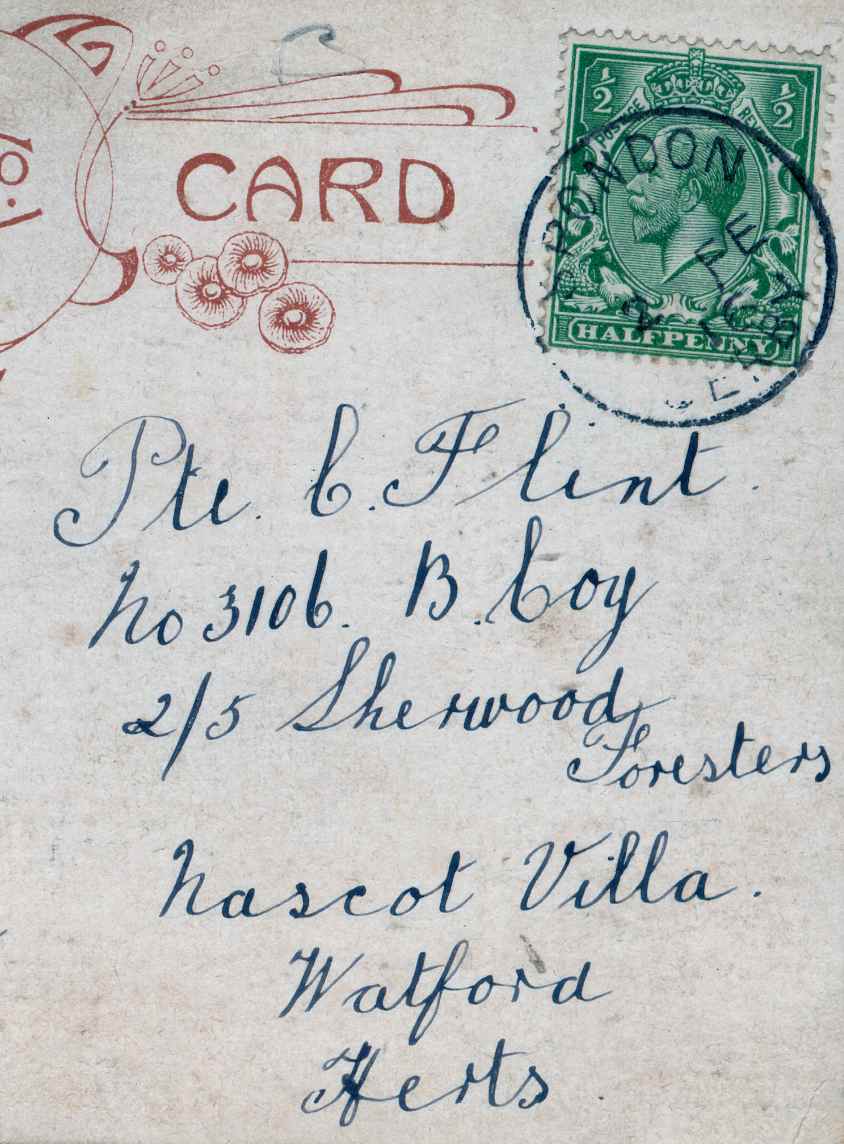 CARD
½ ½
POSTAGE REVENUE
HALFPENNY
FE
16
Pte. C. Flint.
No 3106. B. Coy
2/5 Sherwood
Foresters
Nascot Villa.
Watford
Herts